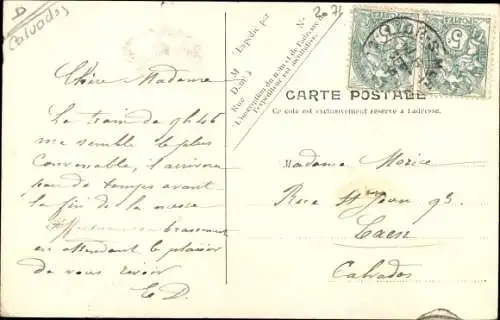 D
Calvados
Chère Madame
Le train de 9h46
me semble le plus
convenable, il arrivera
peu de temps avant
la fin de la messe
Affectueusement
en attendant le plaisir
de vous revoir
E D.
Expédié par
M
Rue
L'inscription du nom et de l'adresse de
l'expéditeur est facultative.
No
CARTE POSTALE
Ce côté est exclusivement réservé à l'adresse.
Madame Morice
Rue St Jean 93
Caen
Calvados
5